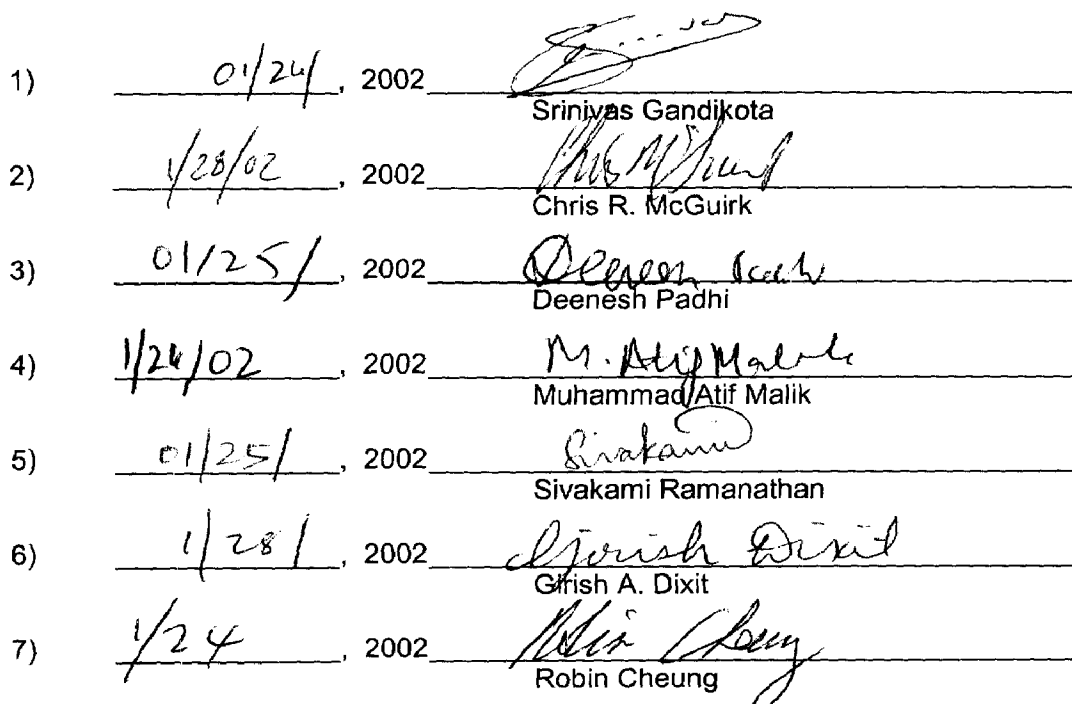 1) 01/24/, 2002
Srinivas Gandikota
2) 1/28/02, 2002 Chris McGuirk
Chris R. McGuirk
3) 01/25/, 2002 Deenesh Padhi
Deenesh Padhi
4) 1/24/02, 2002 M. Atif Malik
Muhammad Atif Malik
5) 01/25/, 2002 Sivakami
Sivakami Ramanathan
6) 1/28/, 2002 Girish Dixit
Girish A. Dixit
7) 1/24, 2002 Robin Cheung
Robin Cheung